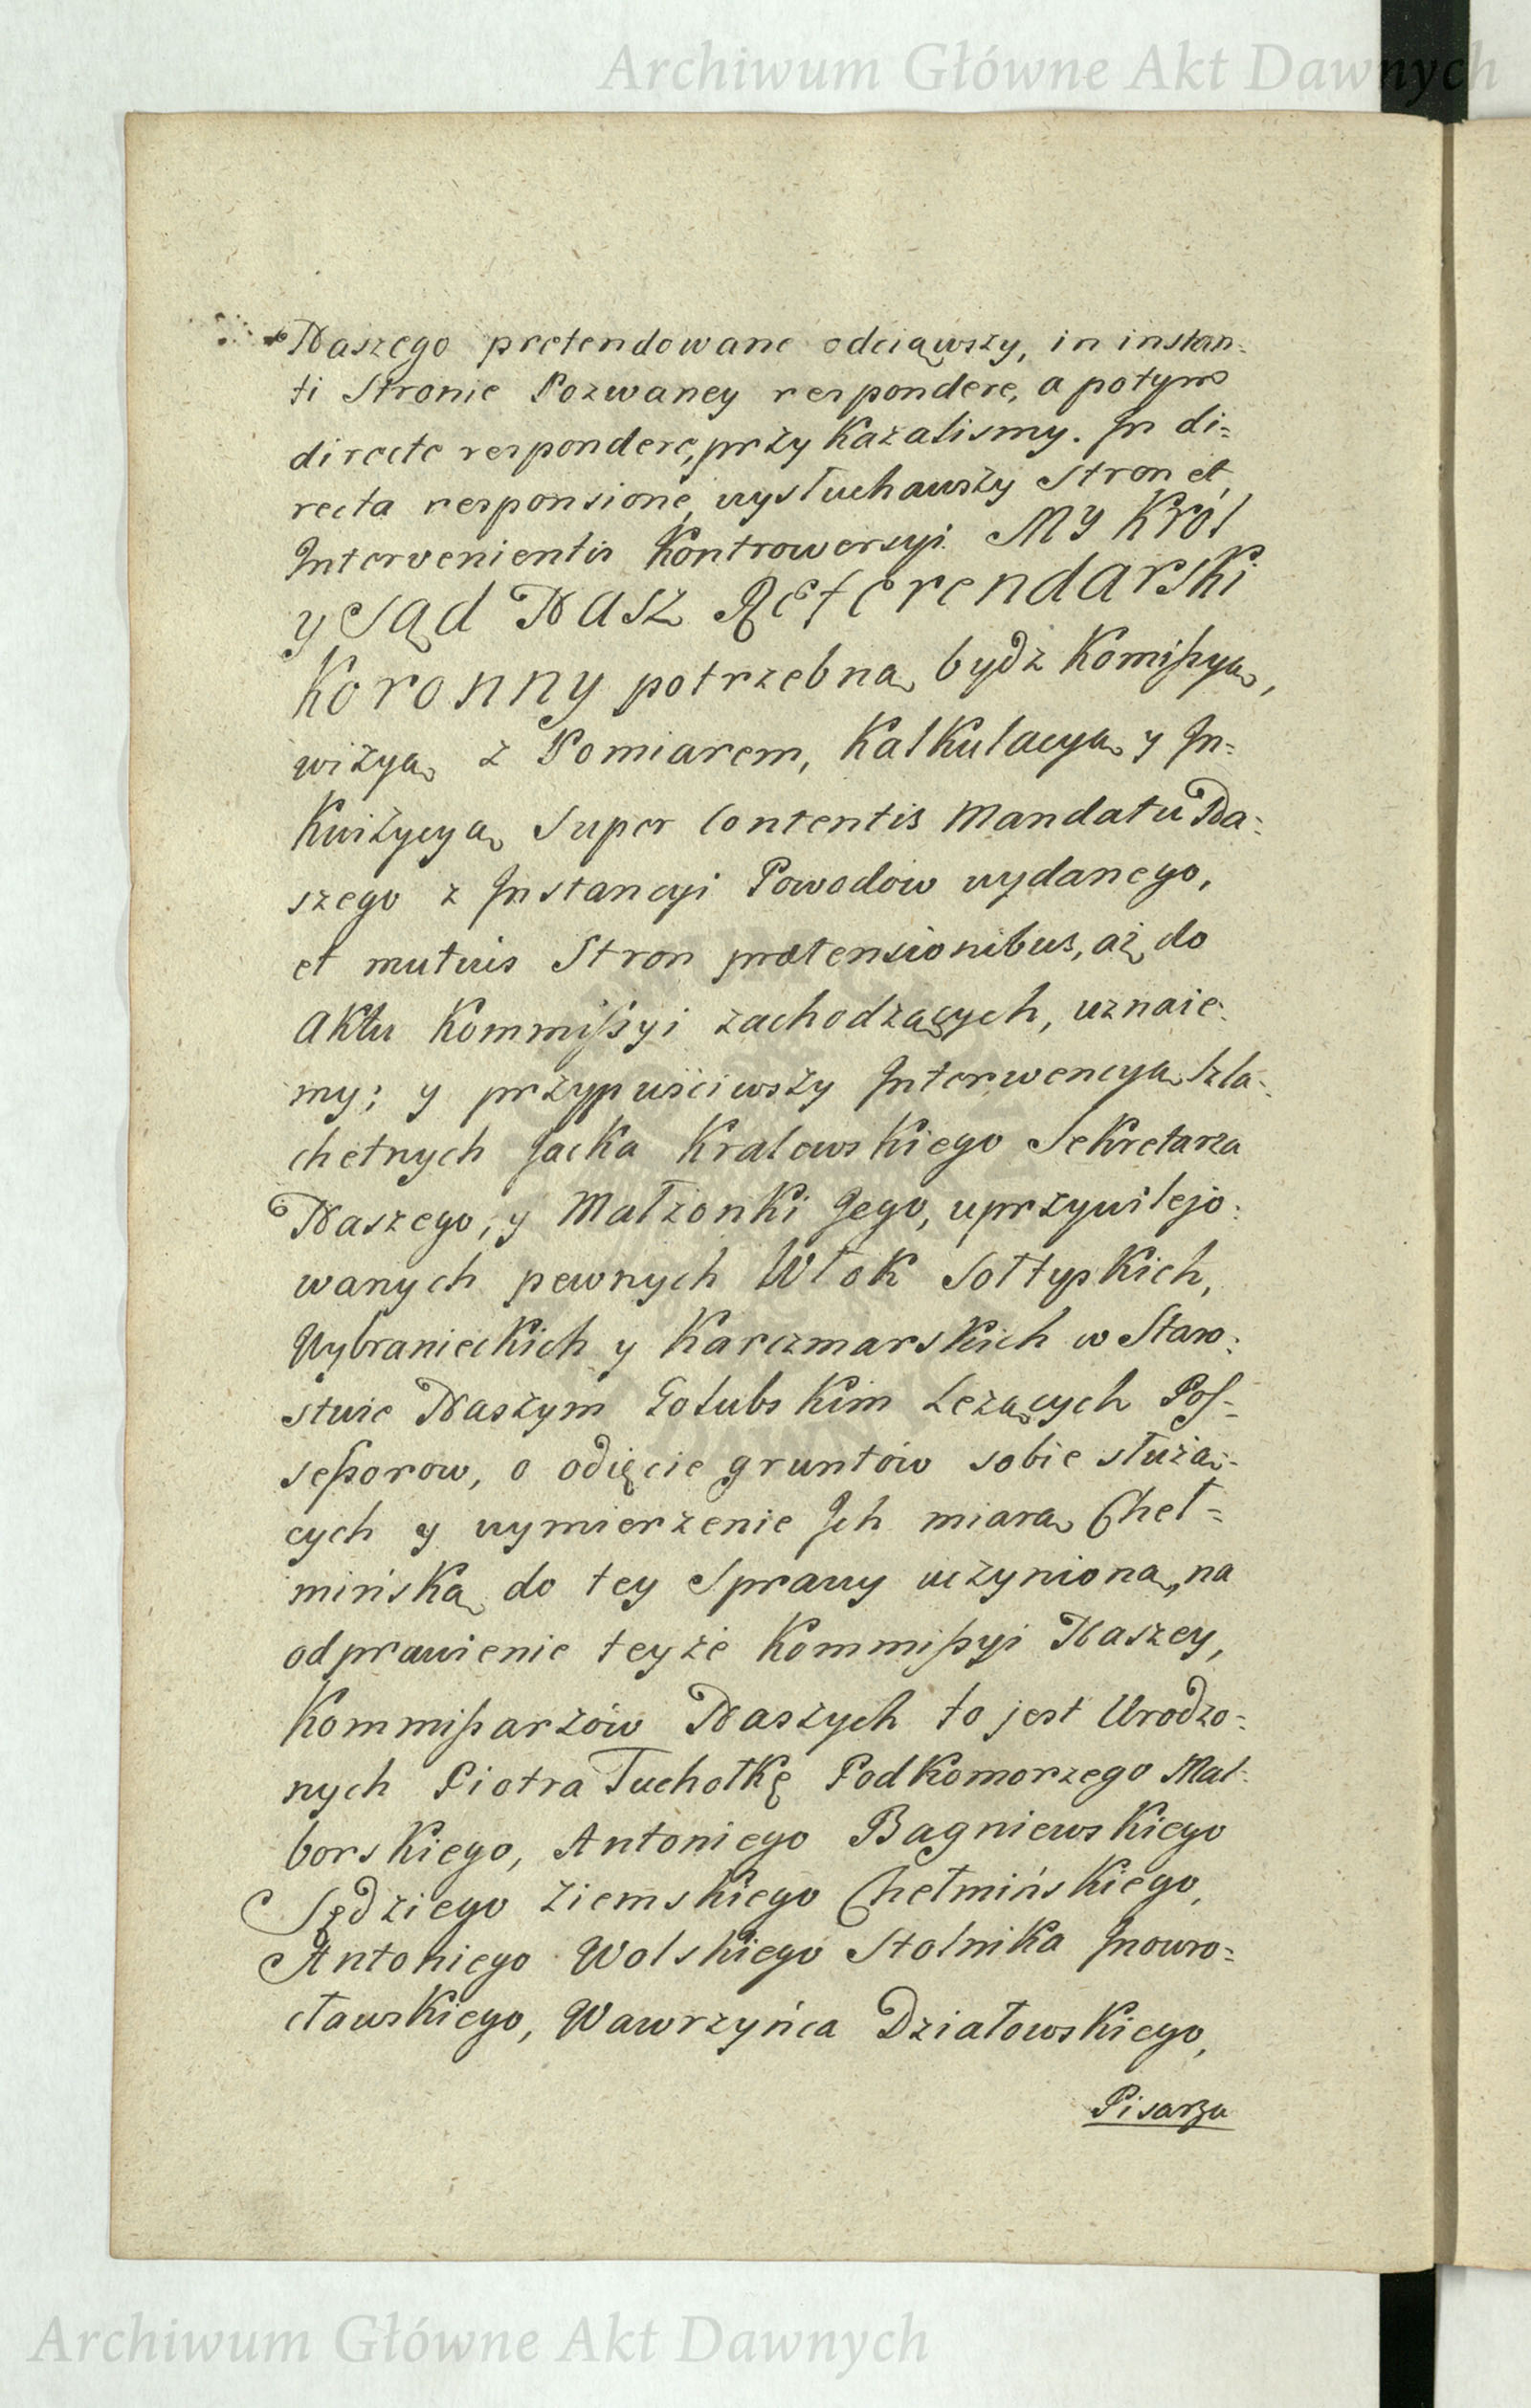 Archiwum Główne Akt Dawnych
Naszego pretendowane odciąwszy, in instan-
ti Stronie Pozwaney respondere, a potym
directe respondere, przy Kazalismy. In di=
recta responsione, wysłuchawszy Stron et
Intervenientis Kontrowersyi. MY Król
y Sąd Nasz Referendarski
Koronny potrzebną bydź Komissyą,
wizyą z Pomiarem, Kalkulacyą y In=
Kwizycyą Super Contentis Mandatu Na=
szego z Instancyi Powodow wydanego,
et mutuis Stron prætensionibus, aż do
Aktu Kommissyi zachodzących, uznaie=
my; y przypuściwszy Interwencyą Szla=
chetnych Jacka Kralewskiego Sekretarza
Naszego, y Małżonki Jego, uprzywilejo=
wanych pewnych Włok Sołtyskich,
Wybranieckich y Karczmarskich w Staro=
stwie Naszym Golubskim Leżących Pos=
sessorow, o odięcie gruntów sobie służą=
cych y wymierzenie Ich miarą Cheł=
mińską do tey Sprawy uczynioną, na
odprawienie teyże Kommissyi Naszey,
Kommissarzów Naszych to jest Urodzo=
nych Piotra Tuchołkę Podkomorzego Mal=
borskiego, Antoniego Bagniewskiego
Sędziego Ziemskiego Chełmińskiego,
Antoniego Wolskiego Stolnika Inowro=
cławskiego, Wawrzyńca Działowskiego,
Pisarza
Archiwum Główne Akt Dawnych